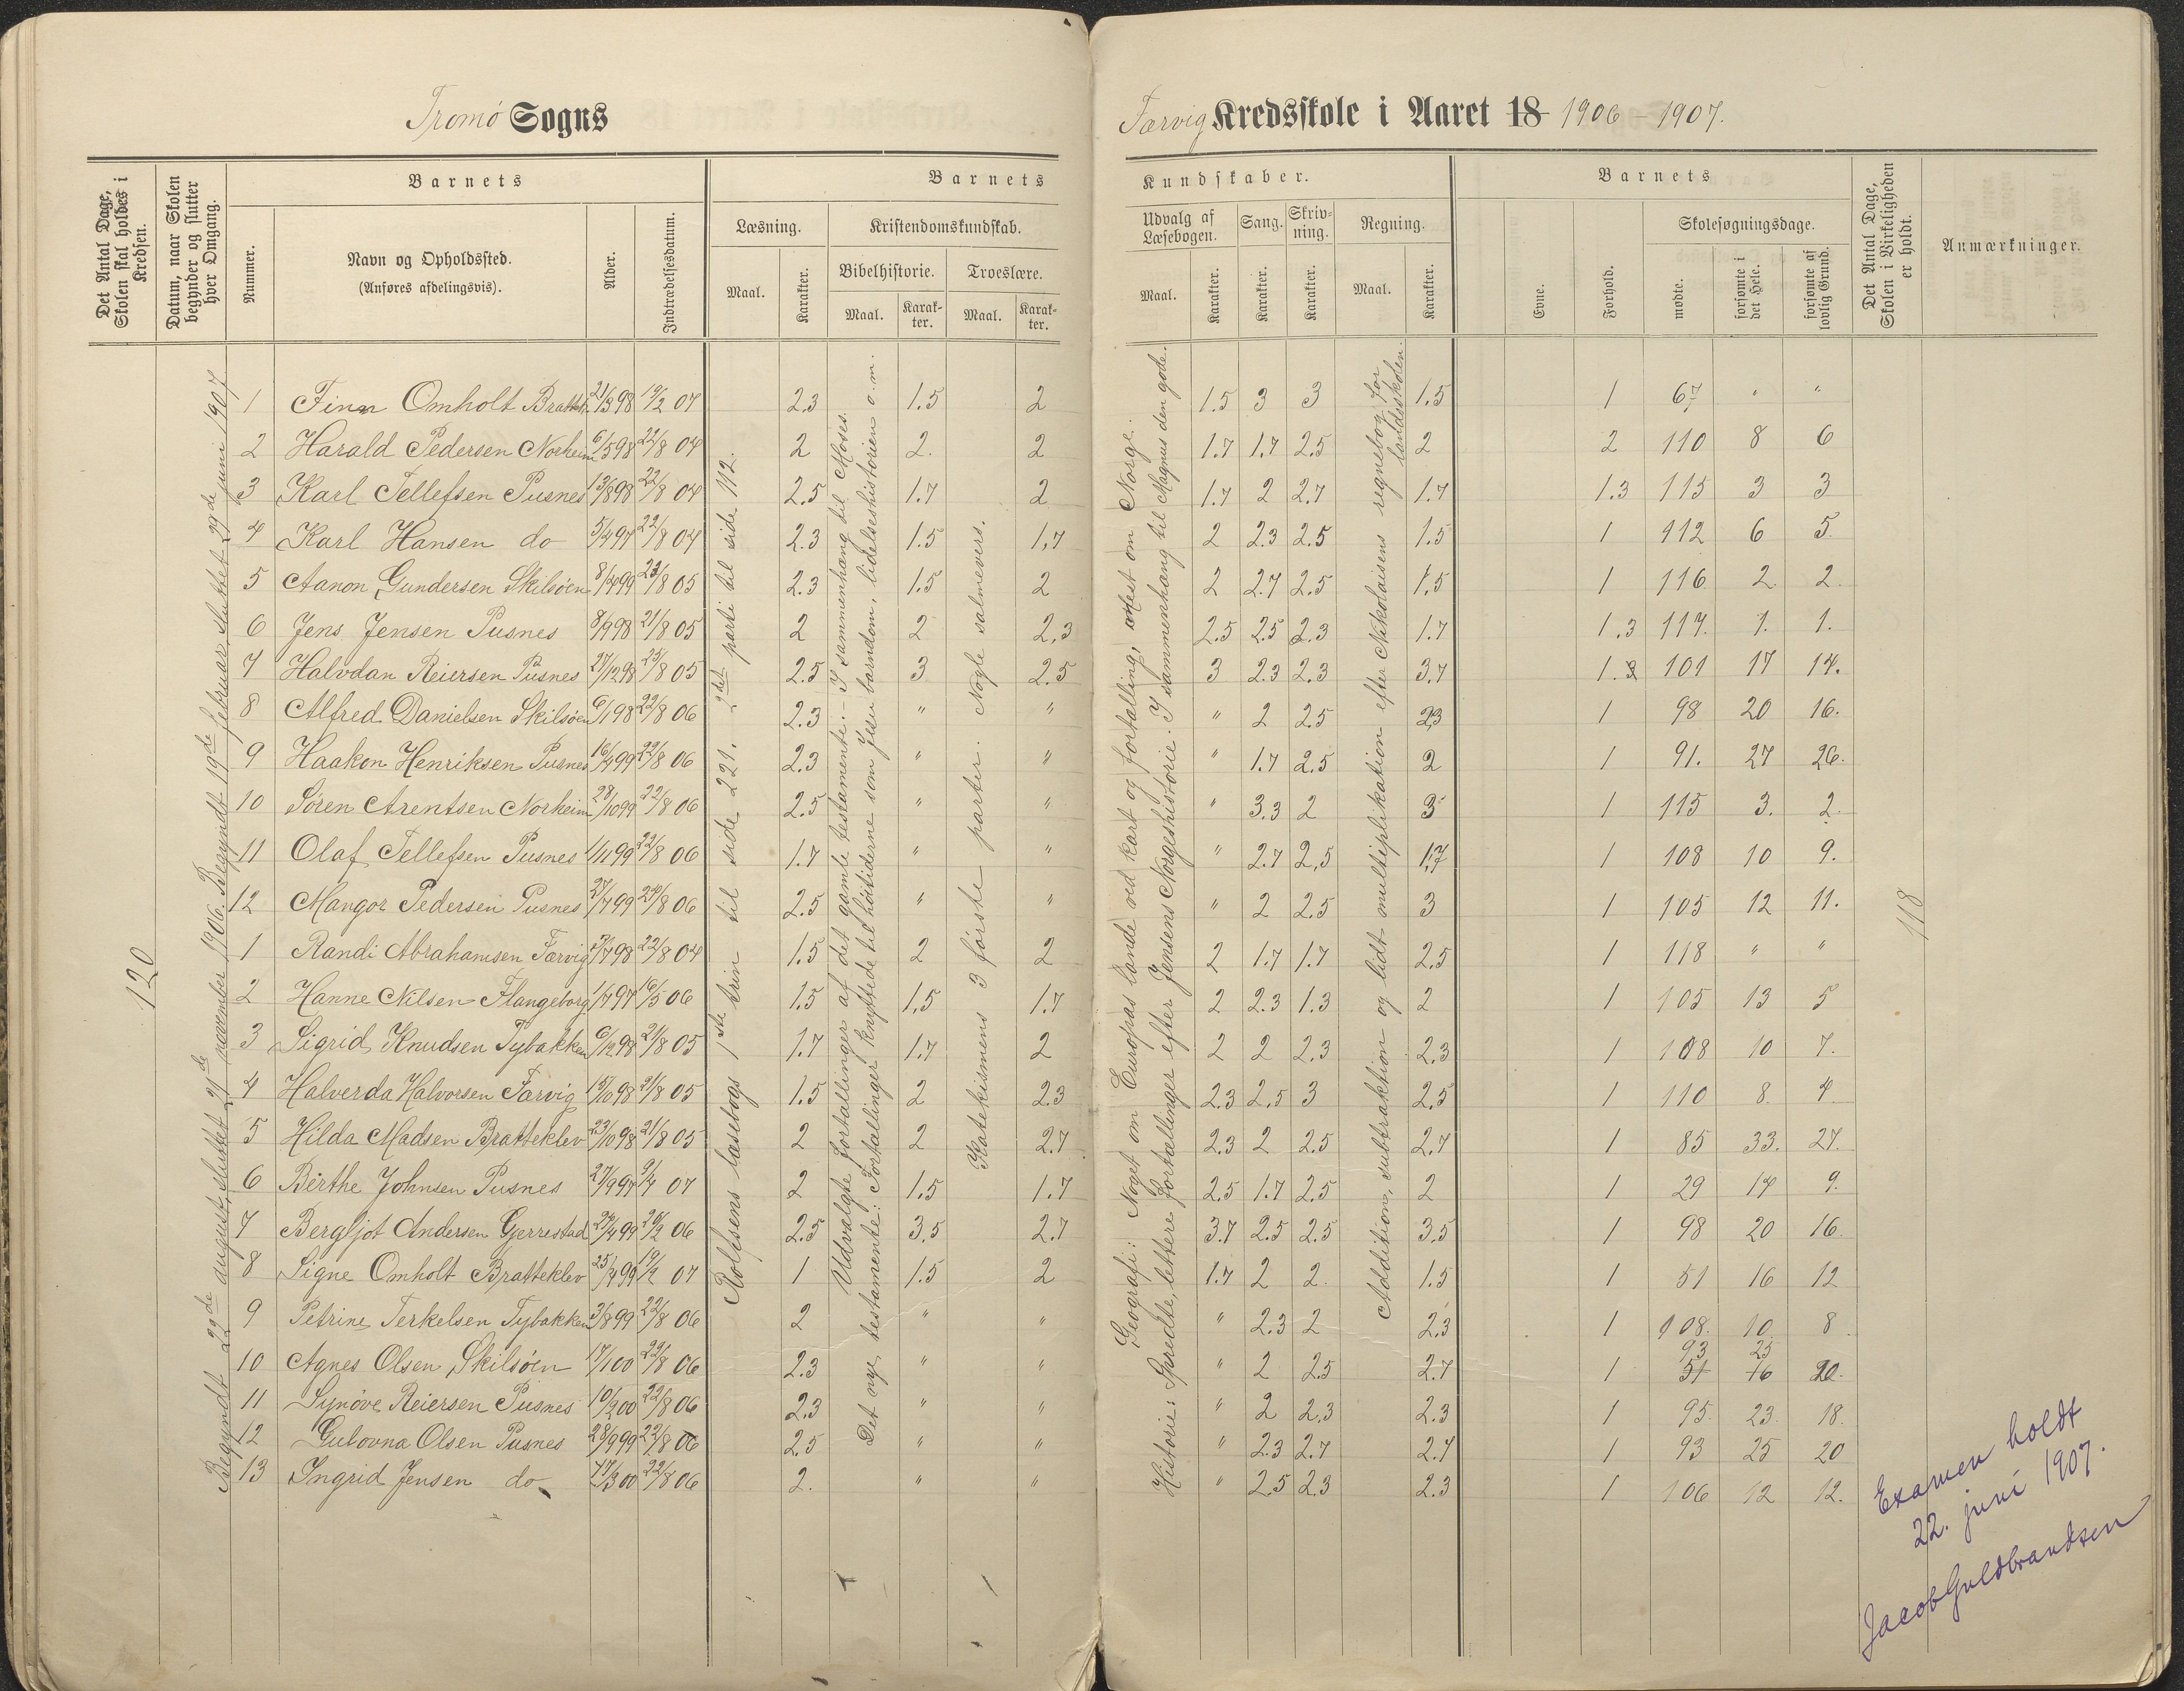 Tromö Sogns
Færvig Kredsskole i Aaret 18 1906 – 1907.
Det Antal Dage, Skolen skal holdes i Kredsen.
Datum, naar Skolen begynder og slutter hver Omgang.
Barnets
Nummer.
Navn og Opholdssted.
(Anføres afdelingsvis).
Alder.
Indtrædelsesdatum.
Barnets
Læsning.
Maal.
Karakter.
Kristendomskundskab.
Bibelhistorie.
Maal.
Karakter.
Troeslære.
Maal.
Karakter.
Kundskaber.
Udvalg af Læsebogen.
Maal.
Karakter.
Sang.
Karakter.
Skrivning.
Karakter.
Regning.
Maal.
Karakter.
Barnets
Evne.
Forhold.
Skolesøgningsdage.
mødte.
forsømte i det Hele.
forsømte af lovlig Grund.
Det Antal Dage, Skolen i Virkeligheden er holdt.
Anmærkninger.
120
Begyndt 22de august, sluttet 21de november 1906. Begyndt 19de februar, sluttet 29de juni 1907
Rolfsens læsebogs 1ste trin til side 221. 2det parti til side 112.
Udvalgte fortællinger af det gamle testamente: – I sammenhæng til Moses.
Det nye testamente: Fortællinger knyttede til höitiderne som Jesu barndom, lidelseshistorien o.m.
Katekismens 3 förste parter. Nogle salmevers.
Geografi: Noget om Europas lande ved kart og fortælling, mest om Norge.
Historie: Spredte, lettere fortællinger efter Jensens Norgeshistorie. I sammenhæng til Magnus den gode.
Addition, subtraktion og lidt multiplikation efter Nikolaisens regnebog for landsskolen.
118
1 Finn Omholt Brattekl. 21/3 98 19/2 07 2.3 1.5 2 1.5 3 3 1.5 1 67 " "
2 Harald Pedersen Norheim 6/5 98 22/8 04 2 2. 2 1.7 1.7 2.5 2 2 110 8 6
3 Karl Tellefsen Pusnes 13/8 98 22/8 04 2.5 1.7 2 1.7 2 2.7 1.7 1.3 115 3 3
4 Karl Hansen do 5/4 97 22/8 04 2.3 1.5 1,7 2 2.3 2.5 1.5 1 112 6 5.
5 Aanon Gundersen Skilsöen 8/4 99 23/8 05 2.3 1.5 2 2 2.7 2.5 1,5 1 116 2 2.
6 Jens Jensen Pusnes 8/9 98 21/8 05 2 2 2,3 2.5 2.5 2.3 1.7 1.3 117. 1. 1.
7 Halvdan Reiersen Pusnes 27/12 98 23/8 05 2.5 3 2.5 3 2.3 2.3 3.7 1. 101 17 14.
8 Alfred Danielsen Skilsöen 6/1 98 22/8 06 2.3 " " " 2 2.5 2.3 1 98 20 16.
9 Haakon Henriksen Pusnes 16/4 99 22/8 06 2.3 " " " 1.7 2.5 2 1 91. 27 26.
10 Sören Arentsen Norheim 28/10 99 22/8 06 2.5 " " " 3.3 2 3 1 115 3. 2.
11 Olaf Tellefsen Pusnes 1/11 99 22/8 06 1.7 " " " 2.7 2,5 1,7 1 108 10 9.
12 Mangor Pedersen Pusnes 27/7 99 24/8 06 2.5 " " " 2 2.5 3 1 105 12 11.
1 Randi Abrahamsen Færvig 2/7 98 22/8 04 1.5 2 2 2 1.7 1.7 2.5 1 118 " "
2 Hanne Nilsen Flangeborg 1/7 97 16/5 06 1.5 1,5 1.7 2 2.3 1.3 2 1 105 13 5
3 Sigrid Knudsen Tybakken 6/12 98 21/8 05 1.7 1.7 2 2 2 2.3 2.3 1 108 10 7.
4 Halverda Halvorsen Færvig 15/10 98 21/8 05 1.5 2 2.3 2.3 2.5 3 2.5 1 110 8. 4
5 Hilda Madsen Bratteklev 23/10 98 21/8 05 2 2 2.7 2.3 2 2.5 2.7 1 85 33. 27.
6 Berthe Johnsen Pusnes 27/9 97 9/4 07 2 1.5 1.7 2.5 1.7 2.5 2 1 29 14 9.
7 Bergljot Andersen Gjerrestad 27/4 99 20/2 06 2.5 3,5 2.7 3.7 2.5 2.5 3.5 1 98 20 16.
8 Signe Omholt Bratteklev 25/4 99 19/2 07 1 1.5 2 1.7 2 2. 1.5 1 51 16 12
9 Petrine Terkelsen Tybakken 3/8 99 22/8 06 2 " " 2.3 2 2,3 1 108. 10. 8.
10 Agnes Olsen Skilsöen 17/1 00 22/8 06 2.3 " " " 2 2.5 2.7 1 51 93 16 25 20.
11 Synöve Reiersen Pusnes 10/2 00 22/8 06 2.3 " " " 2 2,3 2.3 1 95. 23. 18.
12 Gulovna Olsen Pusnes 28/9 99 22/8 06 2.5 " " " 2.3 2.7 2.7 1 93 25 20
13 Ingrid Jensen do 17/3 00 22/8 06 2. " " " 2.5 2.3 2.3 1 106 12 12.
Examen holdt
22. juni 1907.
Jacob Guldbrandsen